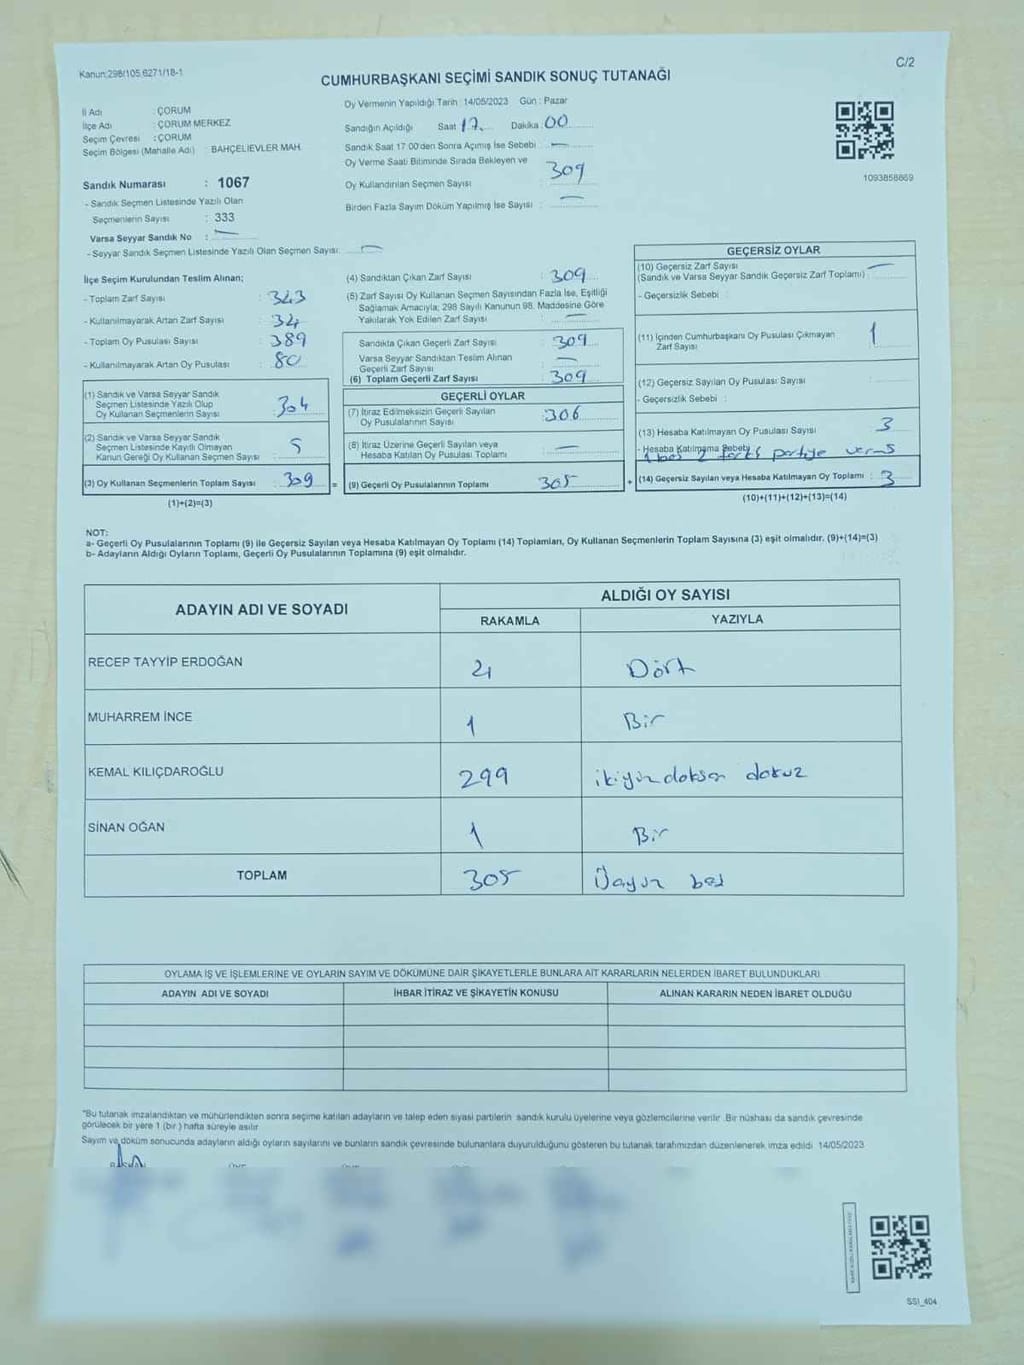 Kanun:298/105,6271/18-1
C/2
CUMHURBAŞKANI SEÇİMİ SANDIK SONUÇ TUTANAĞI
İl Adı : ÇORUM
İlçe Adı : ÇORUM MERKEZ
Seçim Çevresi : ÇORUM
Seçim Bölgesi (Mahalle Adı) : BAHÇELİEVLER MAH.
Sandık Numarası : 1067
- Sandık Seçmen Listesinde Yazılı Olan
Seçmenlerin Sayısı : 333
Varsa Seyyar Sandık No : —
- Seyyar Sandık Seçmen Listesinde Yazılı Olan Seçmen Sayısı: —
Oy Vermenin Yapıldığı Tarih : 14/05/2023 Gün : Pazar
Sandığın Açıldığı Saat 17 Dakika : 00
Sandık Saat 17:00'den Sonra Açımış İse Sebebi : —
Oy Verme Saati Bitiminde Sırada Bekleyen ve
Oy Kullandırılan Seçmen Sayısı : 309
Birden Fazla Sayım Döküm Yapılmış İse Sayısı : —
1093858869
İlçe Seçim Kurulundan Teslim Alınan;
- Toplam Zarf Sayısı : 343
- Kullanılmayarak Artan Zarf Sayısı : 34
- Toplam Oy Pusulası Sayısı : 389
- Kullanılmayarak Artan Oy Pusulası : 80
(1) Sandık ve Varsa Seyyar Sandık
Seçmen Listesinde Yazılı Olup
Oy Kullanan Seçmenlerin Sayısı : 304
(2) Sandık ve Varsa Seyyar Sandık
Seçmen Listesinde Kayıtlı Olmayan
Kanun Gereği Oy Kullanan Seçmen Sayısı : 5
(3) Oy Kullanan Seçmenlerin Toplam Sayısı : 309 =
(1)+(2)=(3)
(4) Sandıktan Çıkan Zarf Sayısı : 309
(5) Zarf Sayısı Oy Kullanan Seçmen Sayısından Fazla İse, Eşitliği
Sağlamak Amacıyla; 298 Sayılı Kanunun 98. Maddesine Göre
Yakılarak Yok Edilen Zarf Sayısı : —
Sandıkta Çıkan Geçerli Zarf Sayısı : 309
Varsa Seyyar Sandıktan Teslim Alınan
Geçerli Zarf Sayısı : —
(6) Toplam Geçerli Zarf Sayısı : 309
GEÇERLİ OYLAR
(7) İtiraz Edilmeksizin Geçerli Sayılan
Oy Pusulalarının Sayısı : 306
(8) İtiraz Üzerine Geçerli Sayılan veya
Hesaba Katılan Oy Pusulası Toplamı : —
(9) Geçerli Oy Pusulalarının Toplamı : 305 +
GEÇERSİZ OYLAR
(10) Geçersiz Zarf Sayısı : —
(Sandık ve Varsa Seyyar Sandık Geçersiz Zarf Toplamı)
- Geçersizlik Sebebi :
(11) İçinden Cumhurbaşkanı Oy Pusulası Çıkmayan
Zarf Sayısı : 1
(12) Geçersiz Sayılan Oy Pusulası Sayısı :
- Geçersizlik Sebebi :
(13) Hesaba Katılmayan Oy Pusulası Sayısı : 3
- Hesaba Katılmama Sebebi : 1 boş 2 farklı partiye vermiş
(14) Geçersiz Sayılan veya Hesaba Katılmayan Oy Toplamı : 3
(10)+(11)+(12)+(13)=(14)
NOT:
a- Geçerli Oy Pusulalarının Toplamı (9) ile Geçersiz Sayılan veya Hesaba Katılmayan Oy Toplamı (14) Toplamları, Oy Kullanan Seçmenlerin Toplam Sayısına (3) eşit olmalıdır. (9)+(14)=(3)
b- Adayların Aldığı Oyların Toplamı, Geçerli Oy Pusulalarının Toplamına (9) eşit olmalıdır.
ADAYIN ADI VE SOYADI
ALDIĞI OY SAYISI
RAKAMLA YAZIYLA
RECEP TAYYİP ERDOĞAN 4 Dört
MUHARREM İNCE 1 Bir
KEMAL KILIÇDAROĞLU 299 ikiyüz doksan dokuz
SİNAN OĞAN 1 Bir
TOPLAM 305 Üçyüz beş
OYLAMA İŞ VE İŞLEMLERİNE VE OYLARIN SAYIM VE DÖKÜMÜNE DAİR ŞİKAYETLERLE BUNLARA AİT KARARLARIN NELERDEN İBARET BULUNDUKLARI
ADAYIN ADI VE SOYADI İHBAR İTİRAZ VE ŞİKAYETİN KONUSU ALINAN KARARIN NEDEN İBARET OLDUĞU
"Bu tutanak imzalandıktan ve mühürlendikten sonra seçime katılan adayların ve talep eden siyasi partilerin sandık kurulu üyelerine veya gözlemcilerine verilir. Bir nüshası da sandık çevresinde
görülecek bir yere 1 (bir) hafta süreyle asılır.
Sayım ve döküm sonucunda adayların aldığı oyların sayılarını ve bunların sandık çevresinde bulunanlara duyurulduğunu gösteren bu tutanak tarafımızdan düzenlenerek imza edildi 14/05/2023
SSI_404